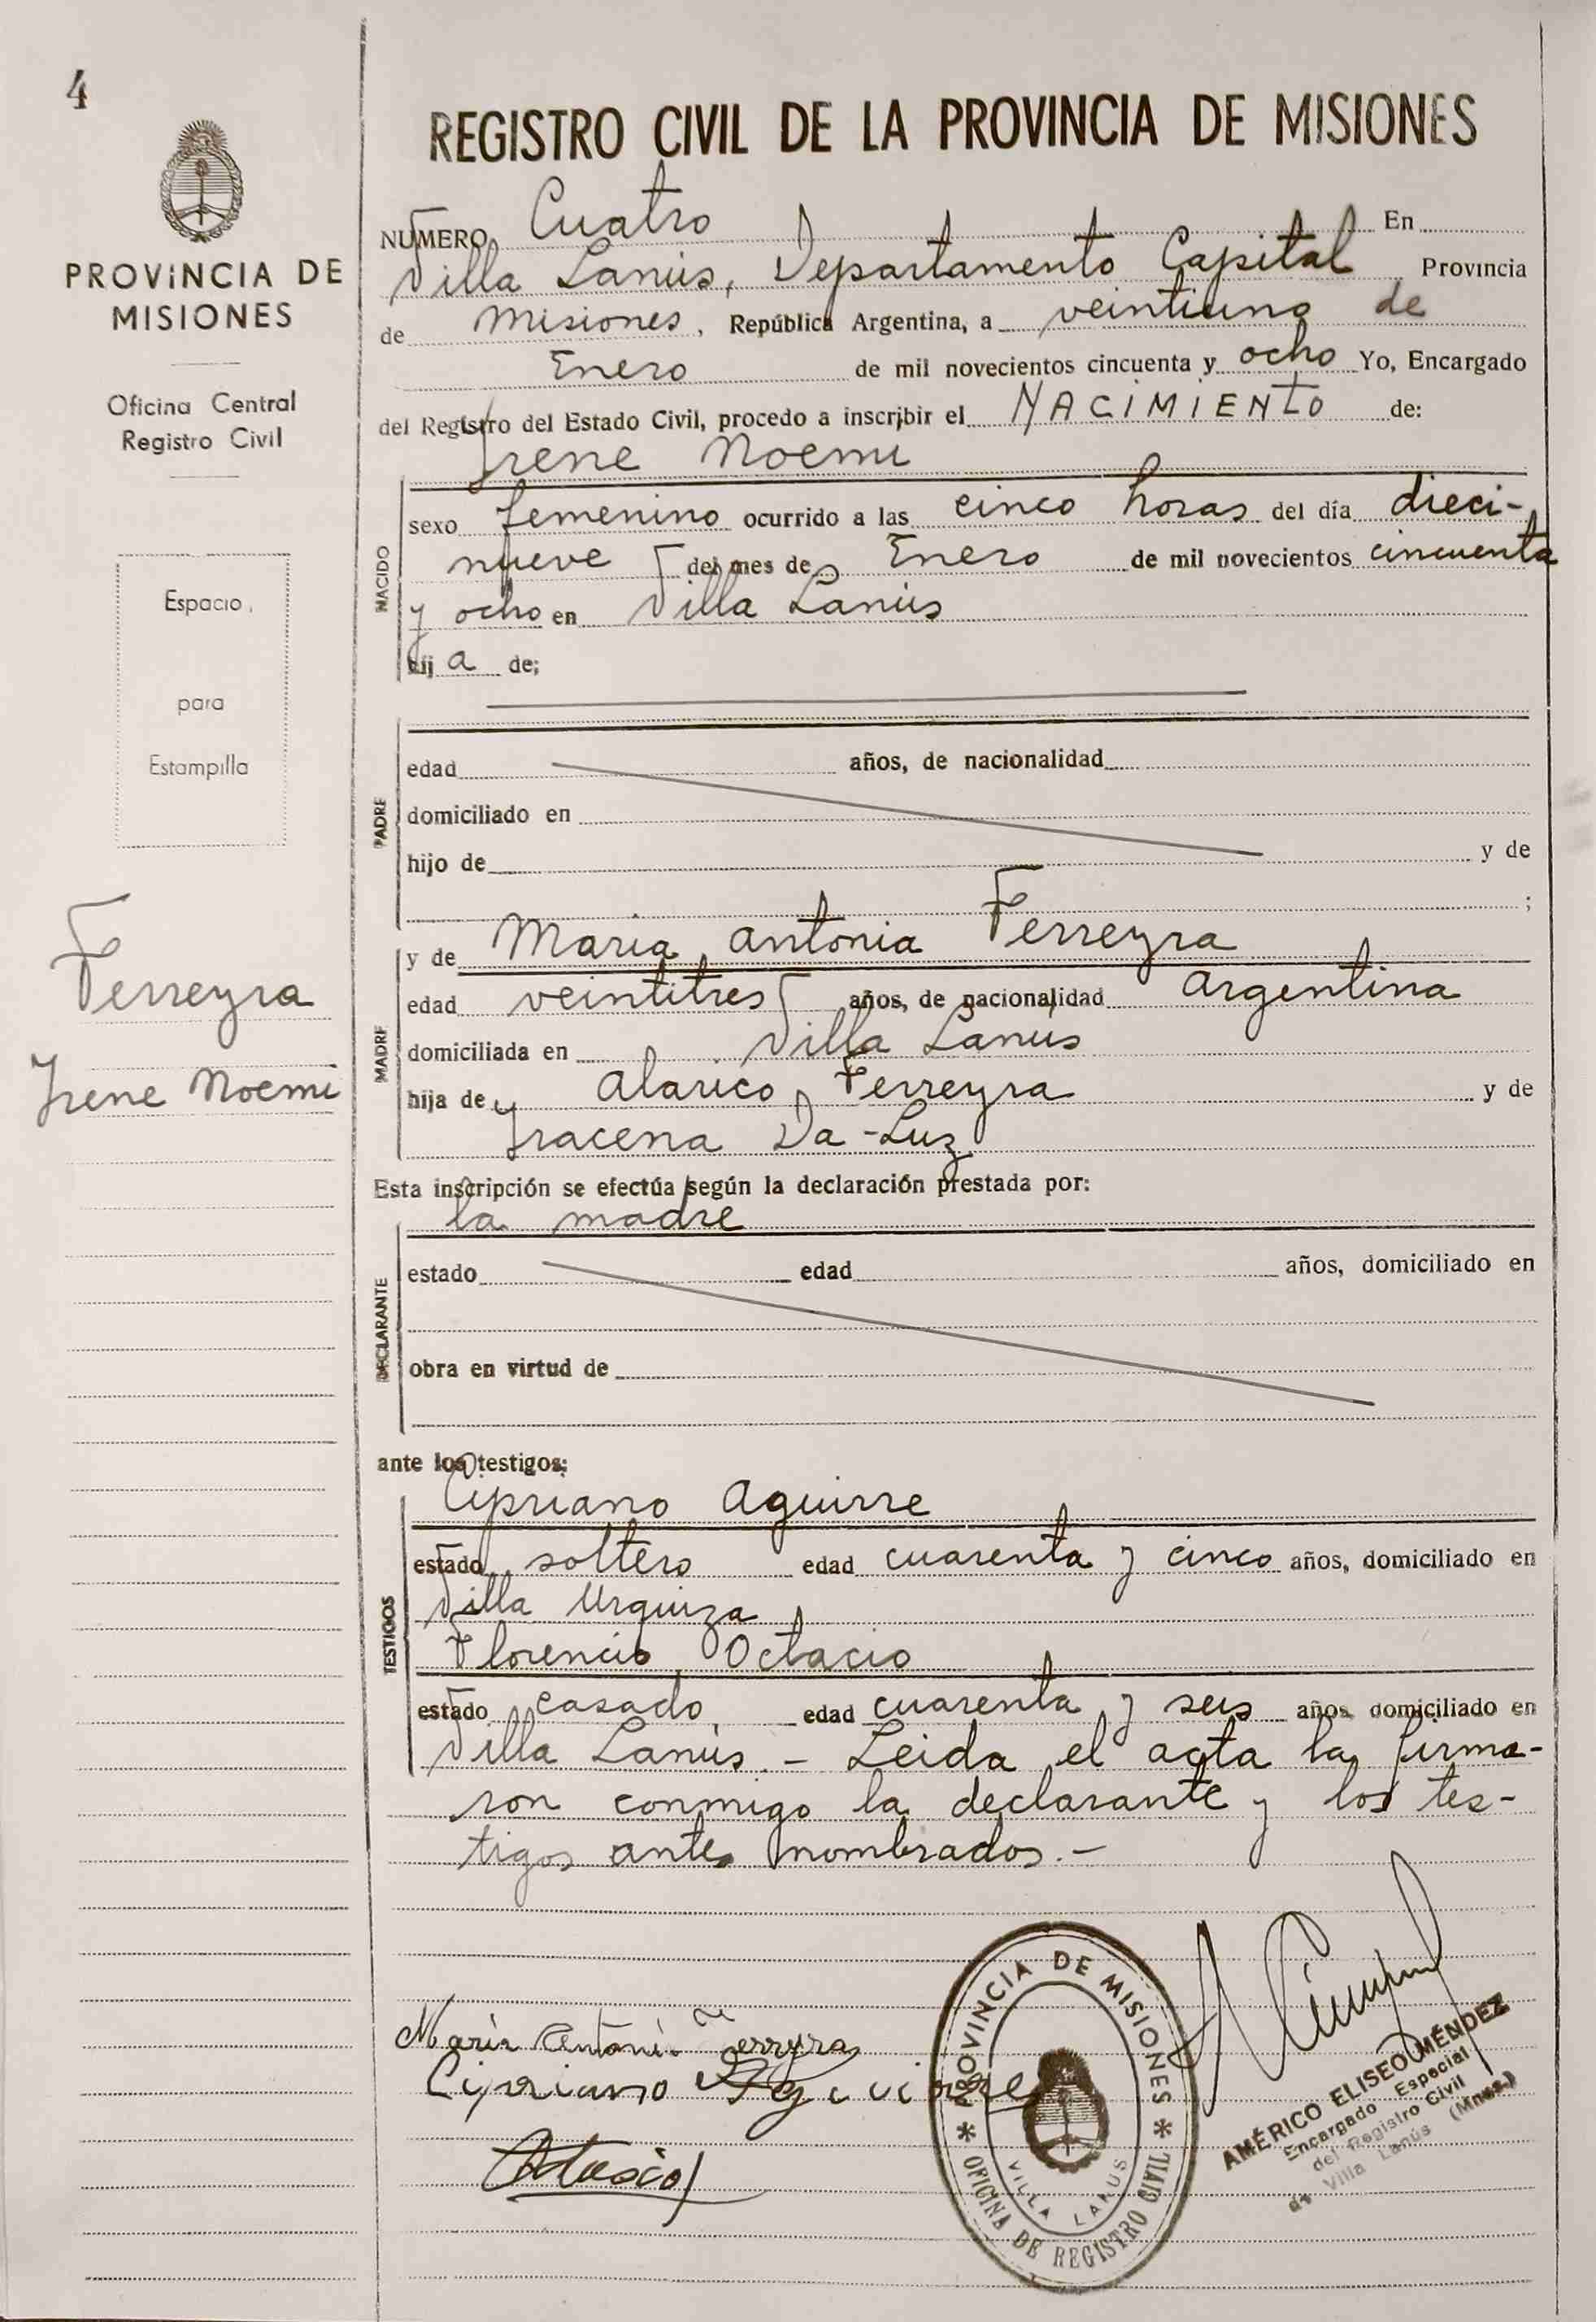 4
PROVINCIA DE
MISIONES
Oficina Central
Registro Civil
Espacio
para
Estampilla
Ferreyra
Irene Noemi
REGISTRO CIVIL DE LA PROVINCIA DE MISIONES
NUMERO Cuatro En
Villa Lanús, Departamento Capital Provincia
de Misiones, República Argentina, a veintiuno de
Enero de mil novecientos cincuenta y ocho Yo, Encargado
del Registro del Estado Civil, procedo a inscribir el NACIMIENTO de:
Irene Noemi
NACIDO
sexo femenino ocurrido a las cinco horas del día dieci-
nueve del mes de Enero de mil novecientos cincuenta
y ocho en Villa Lanús
hij a de;
PADRE
edad años, de nacionalidad
domiciliado en
hijo de y de
;
MADRE
y de Maria Antonia Ferreyra
edad veintitres años, de nacionalidad Argentina
domiciliada en Villa Lanús
hija de Alarico Ferreyra y de
Iracena Da-Luz
Esta inscripción se efectúa según la declaración prestada por:
la madre
DECLARANTE
estado edad años, domiciliado en
obra en virtud de
ante los testigos:
Cipriano Aguirre
TESTIGOS
estado soltero edad cuarenta y cinco años, domiciliado en
Villa Urquiza
Florencio Octacio
estado casado, edad cuarenta y seis años domiciliado en
Villa Lanús. - Leida el acta la firma-
ron conmigo la declarante y los tes-
tigos antes nombrados. -
Maria Antonia Ferreyra
Cipriano Aguirre
PROVINCIA DE MISIONES
OFICINA DE REGISTRO CIVIL
VILLA LANUS
AMÉRICO ELISEO MÉNDEZ
Encargado Especial
del Registro Civil
de Villa Lanús (Mnes.)